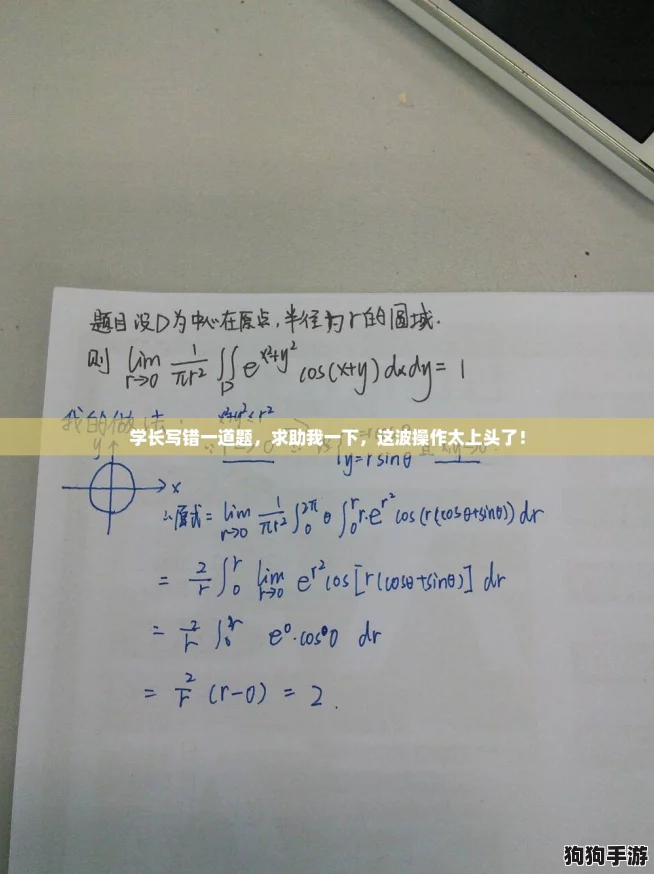 题目 设D为中心在原点,半径为r的圆域.
则 lim r→0 1/πr² ∬D e^(x²+y²) cos(x+y) dxdy = 1
我的做法:
x²+y²≤r²
学长写错一道题,求助我一下,这波操作太上头了!
y=rsinθ
y
x
∴原式= lim r→0 1/πr² ∫₀^2π θ ∫₀^r r·e^(r²) cos(r(cosθ+sinθ)) dr
= 2/r ∫₀^r lim r→0 e^(r²) cos[r(cosθ+sinθ)] dr
= 2/r ∫₀^r e⁰·cos0 dr
= 2/r (r-0) = 2.
狗狗手游